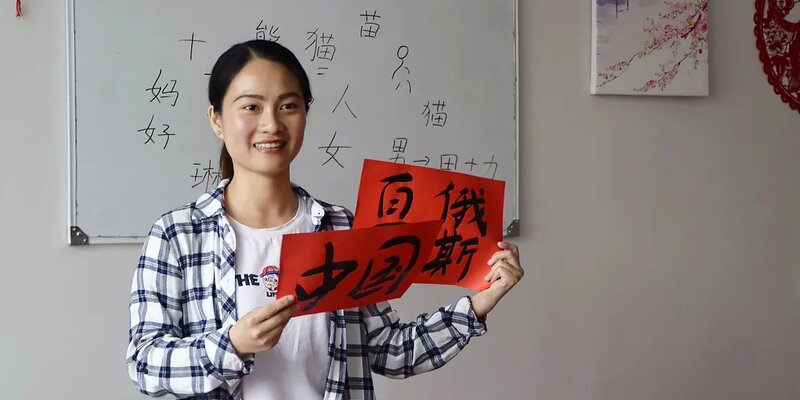 十 熊 猫 苗
妈
好
人
猫
女
男→田+力
琳
俄
斯
中国
HE